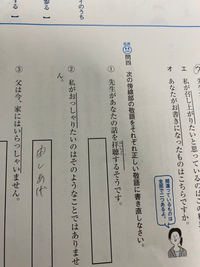 オ 私が召し上がりたいと思っているのは
オ あなたがお書きになったものはこちらですか。
間違っているものは
全部で二つあるよ。
問四 次の傍線部の敬語をそれぞれ正しい敬語に書き直しなさい。
① 先生があなたの話を拝聴するそうです。
② 私がおっしゃりたいのはそのようなことではありませ
ん。
申しあげ
③ 父は今、家にはいらっしゃいません。